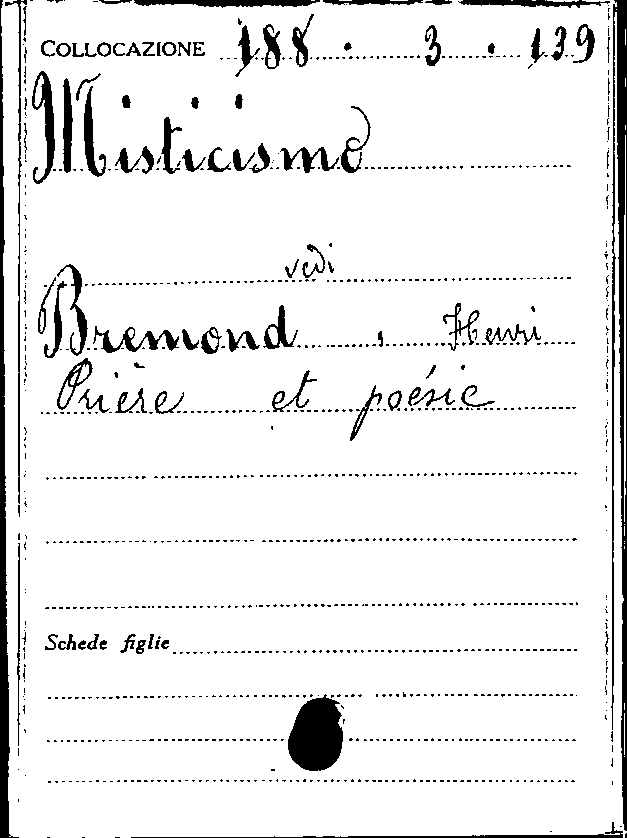 COLLOCAZIONE 188 . 3 . 139
Misticismo
vedi
Bremond , Henri
Prière et poésie
Schede figlie